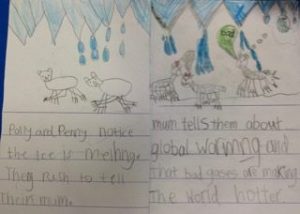 Polly and Penny notice
the ice is melting.
They rush to tell
their mum.
mum tells them about
global warming and
that bad gases are making
the world hotter